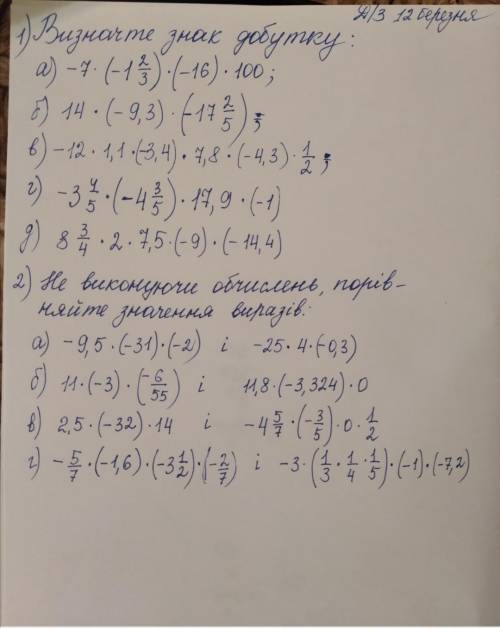 Д/З 12 березня
1) Визначте знак добутку:
а) -7 · (-1 2/3) · (-16) · 100;
б) 14 · (-9,3) · (-17 2/5);
в) -12 · 1,1 · (-3,4) · 7,8 · (-4,3) · 1/2;
г) -3 4/5 · (-4 3/5) · 17,9 · (-1)
д) 8 3/4 · 2 · 7,5 · (-9) · (-14,4)
2) Не виконуючи обчислень, порів-
няйте значення виразів:
а) -9,5 · (-31) · (-2) і -25 · 4 · (-0,3)
б) 11 · (-3) · (-6/55) і 11,8 · (-3,324) · 0
в) 2,5 · (-32) · 14 і -4 5/7 · (-3/5) · 0 · 1/2
г) -5/7 · (-1,6) · (-3 1/2) · (-2/7) і -3 · (1/3 · 1/4 · 1/5) · (-1) · (-7,2)